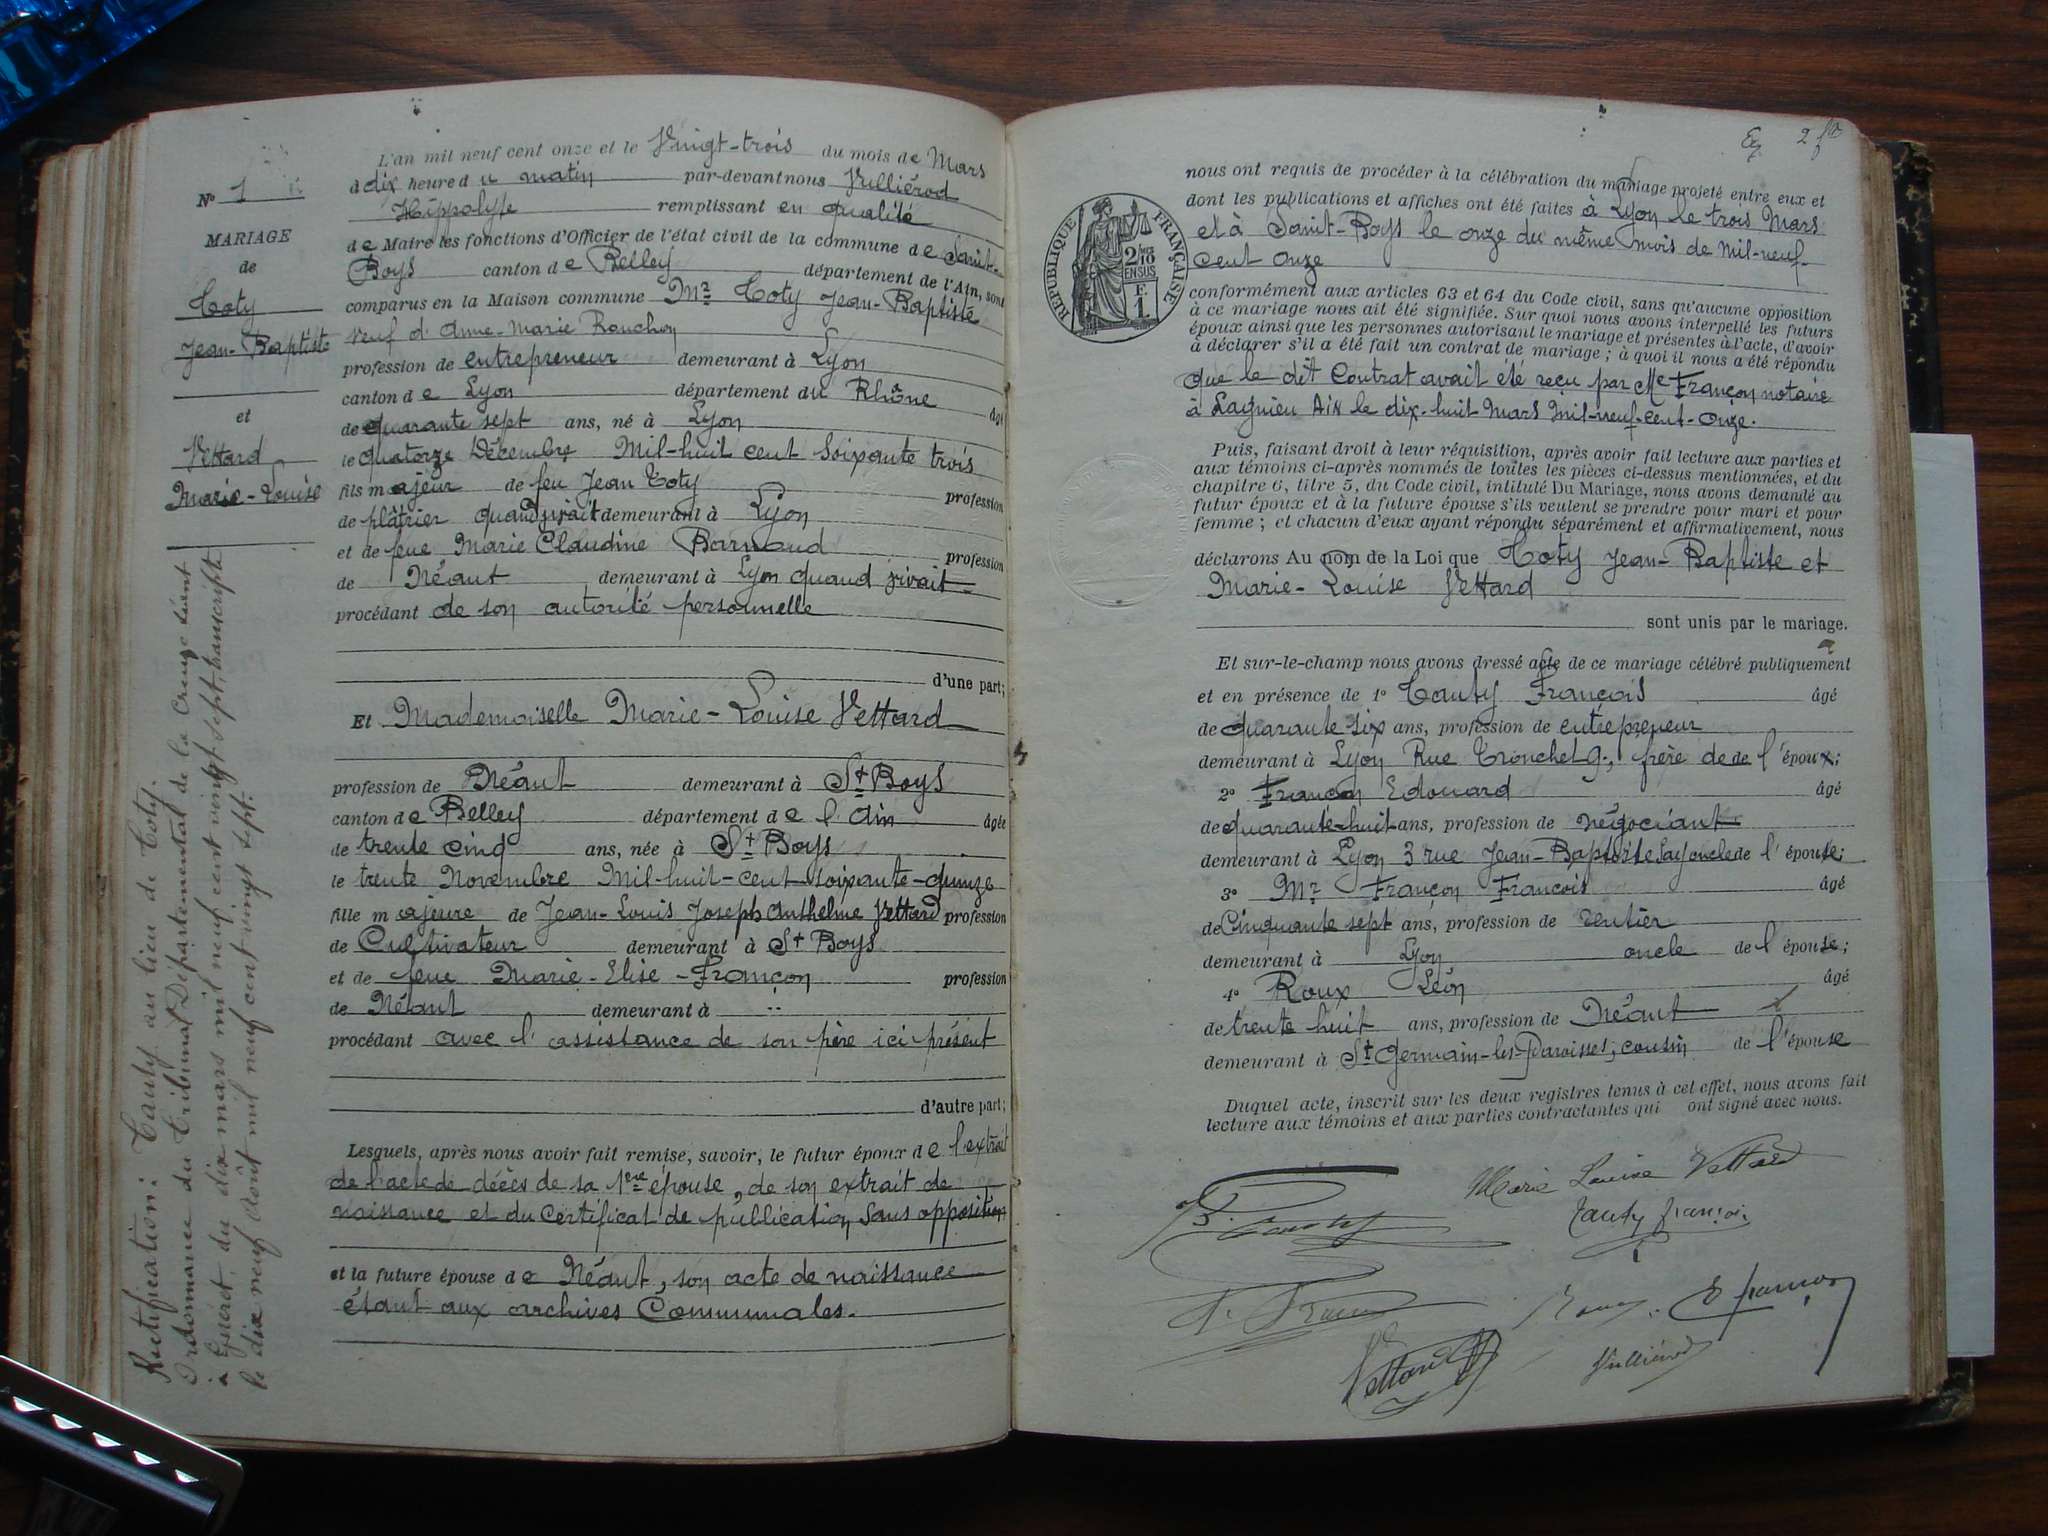 N° 1
MARIAGE
de
Toty
Jean-Baptiste
et
Vettard
Marie-Louise
Rectification: Tauty au lieu de Toty.
Ordonnance du Tribunal Départemental de la Creuse séant
à Guéret, du dix mars mil neuf cent vingt sept, transcript
le dix neuf Août mil neuf cent vingt sept.
L'an mil neuf cent onze et le Vingt-trois du mois de Mars
à dix heure du matin par-devant nous Vulliérod
Hippolyte remplissant en qualité
de Maire les fonctions d'Officier de l'état civil de la commune de Saint-
Boys canton de Belley département de l'Ain, sont
comparus en la Maison commune Mr Toty Jean-Baptiste
veuf d'Anne-Marie Ronchon
profession de entrepreneur demeurant à Lyon
canton de Lyon département du Rhône âgé
de quarante sept ans, né à Lyon
le quatorze Décembre Mil-huit cent soixante trois
fils majeur de feu Jean Toty profession
de plâtrier quand vivait demeurant à Lyon
et de feue Marie Claudine Barnoud profession
de Néant demeurant à Lyon quand vivait
procédant de son autorité personnelle
d'une part;
Et Mademoiselle Marie-Louise Vettard
profession de Néant demeurant à St Boys
canton de Belley département de l'Ain âgée
de trente cinq ans, née à St Boys
le trente Novembre Mil-huit-cent-soixante-quinze
fille majeure de Jean-Louis Joseph Anthelme Vettard profession
de Cultivateur demeurant à St Boys
et de feue Marie-Elise-Françon profession
de Néant demeurant à
procédant avec l'assistance de son père ici présent
d'autre part;
Lesquels, après nous avoir fait remise, savoir, le futur époux de l'extrait
de l'acte de décès de sa 1ère épouse, de son extrait de
naissance et du Certificat de publication sans opposition
et la future épouse de Néant, son acte de naissance
étant aux archives Communales.
2
nous ont requis de procéder à la célébration du mariage projeté entre eux et
dont les publications et affiches ont été faites à Lyon le trois Mars
et à Saint-Boys le onze du même mois de Mil-neuf-
cent onze
RÉPUBLIQUE FRANÇAISE
2/10 EN SUS
F. 1
conformément aux articles 63 et 64 du Code civil, sans qu'aucune opposition
à ce mariage nous ait été signifiée. Sur quoi nous avons interpellé les futurs
époux ainsi que les personnes autorisant le mariage et présentes à l'acte, d'avoir
à déclarer s'il a été fait un contrat de mariage; à quoi il nous a été répondu
que le dit Contrat avait été reçu par Me Françon notaire
à Lagnieu Ain le dix-huit Mars Mil-neuf-cent-onze.
Puis, faisant droit à leur réquisition, après avoir fait lecture aux parties et
aux témoins ci-après nommés de toutes les pièces ci-dessus mentionnées, et du
chapitre 6, titre 5, du Code civil, intitulé Du Mariage, nous avons demandé au
futur époux et à la future épouse s'ils veulent se prendre pour mari et pour
femme; et chacun d'eux ayant répondu séparément et affirmativement, nous
déclarons Au nom de la Loi que Toty Jean-Baptiste et
Marie-Louise Vettard
sont unis par le mariage.
Et sur-le-champ nous avons dressé acte de ce mariage célébré publiquement
et en présence de 1° Tauty François âgé
de quarante-six ans, profession de entrepreneur
demeurant à Lyon Rue Tronchet 9., frère de de l'époux;
2° Françon Edouard âgé
de quarante-huit ans, profession de négociant
demeurant à Lyon 3 rue Jean-Baptiste Say oncle de l'épouse;
3° Mr Françon François âgé
de Cinquante sept ans, profession de rentier
demeurant à Lyon oncle de l'épouse;
4° Roux Léon âgé
de trente huit ans, profession de Néant
demeurant à St Germain-les-Paroisses, cousin de l'épouse
Duquel acte, inscrit sur les deux registres tenus à cet effet, nous avons fait
lecture aux témoins et aux parties contractantes qui ont signé avec nous.
Marie Louise Vettard
Tauty françois
Roux
E françon
Vettard
Vulliérod